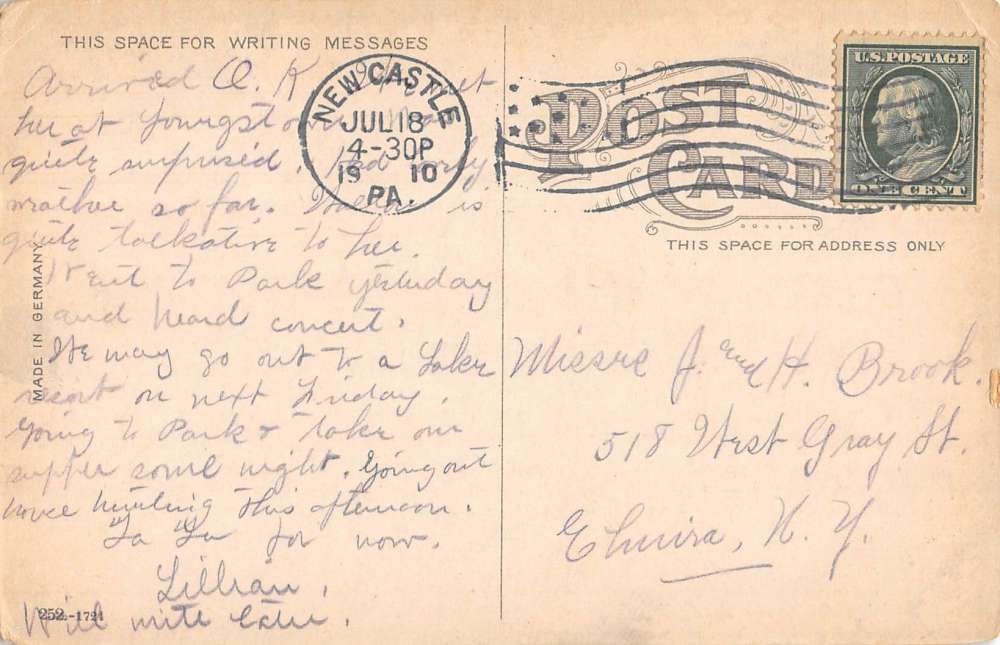 THIS SPACE FOR WRITING MESSAGES
Arrived O. K.
her at Youngstown
quite surprised. Had
weather so far. is
quite talkative to her.
Went to Park yesterday
and heard concert.
We may go out to a Lake
resort on next Friday.
Going to Park & take our
supper some night. Going out
house hunting this afternoon.
Ta Ta for now.
Lillian.
Will write later.
252.-1721
MADE IN GERMANY
NEW CASTLE
JUL 18
4-30P
19 10
PA.
POST CARD
U.S. POSTAGE
ONE CENT
THIS SPACE FOR ADDRESS ONLY
J. and H. Brook.
518 West Gray St.
Elmira, N. Y.